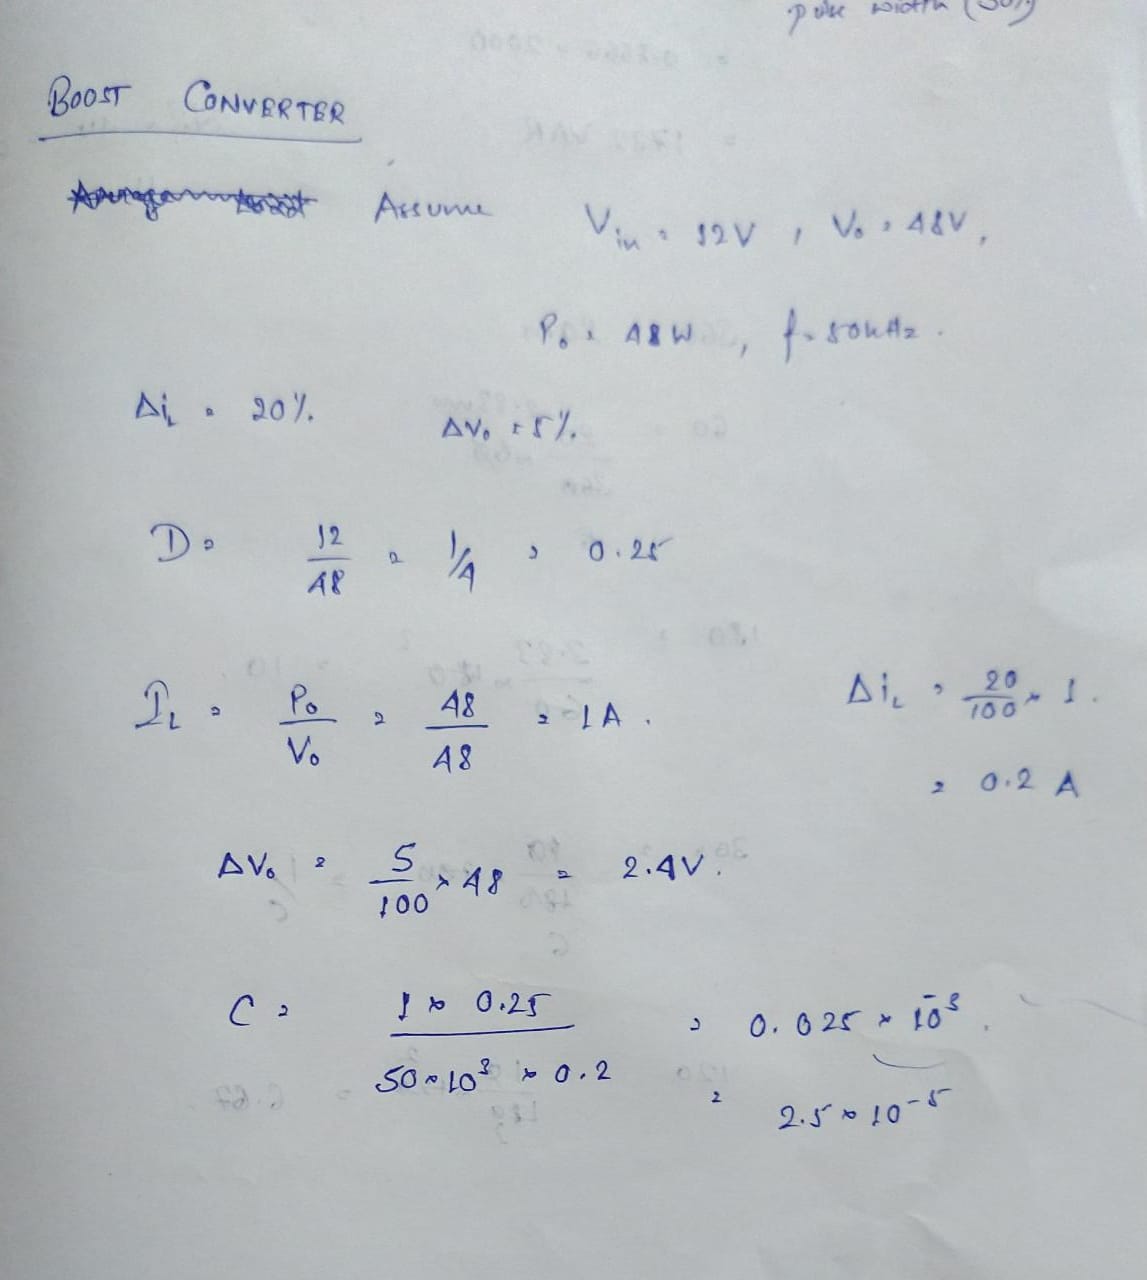 pulse width (50%)
BOOST CONVERTER
Assume Vin = 12V , Vo = 48V,
Po = 48W , f = 50kHz .
ΔiL = 20% ΔVo = 5%.
D = 12/48 = 1/4 = 0.25
IL = Po/Vo = 48/48 = 1A . ΔiL = 20/100 × 1 .
= 0.2 A
ΔVo = 5/100 × 48 = 2.4V .
C = 1 × 0.25 / 50×10³ × 0.2 = 0.025 × 10⁻³ .
= 2.5 × 10⁻⁵